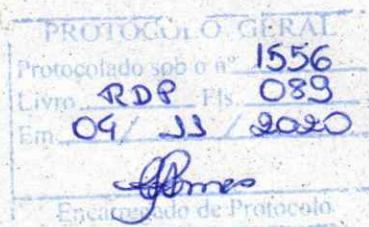 PROTOCOLO GERAL
Protocolado sob o nº 1556
Livro RDP Fls. 089
Em 04 / 11 / 2020
Encarregado de Protocolo